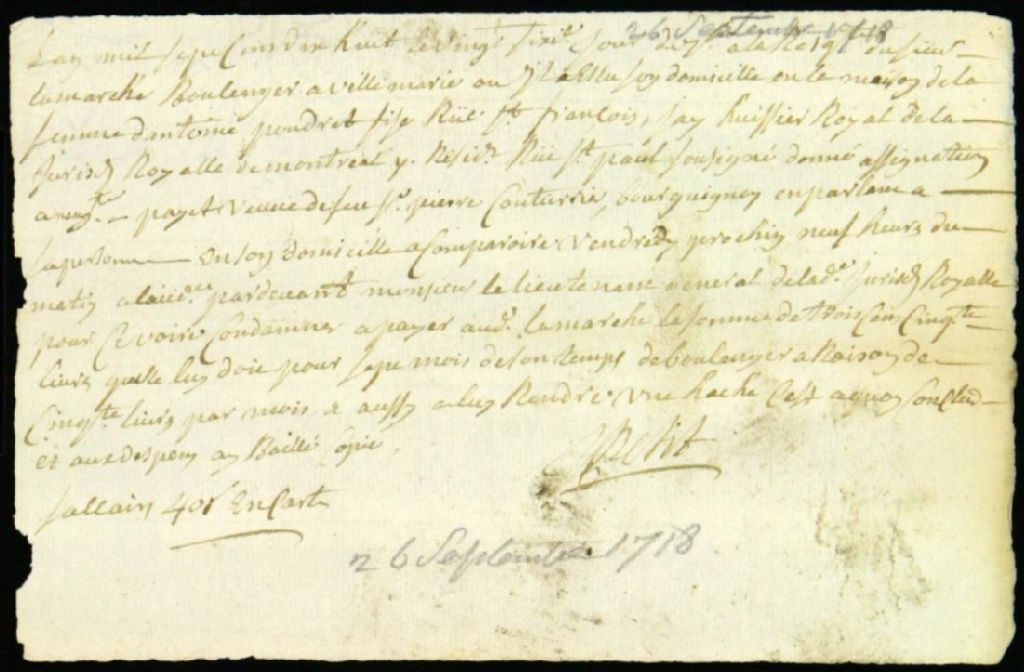 26 Septembre 1718
Lan mil sept Cens dix huit le vingt sixe Jour a la Req du sieur
Lamarche Boulenger a villemarie ou Il a Eslu son domicille en la maison de la
femme dantoine poudret sise Rüe st francois, Jay huissier Royal de la
Jurison Royalle de montreal y Residt Rüe st paul sousigné donné assignation
a payet veuve de feu sr pierre Couturrier, bourguignon en parlant a
sa personne En son domicille a Comparoire vendredy prochin neuf heures du
matin a laudce pardevant monsieur le lieutenant general de lade Jurison Royalle
pour Ce voire Condamner a payer audt lamarche la somme de trois Cens Cinqte
livres quelle luy doit pour sept mois de son temps de boulenger a Raison de
Cinqte livres par mois, & aussy a luy Rendre une hache Cest a quoy Conclud
et aux despens ay Baillé Copie
JPetit
sallaire 40s En Carte
26 Septembre 1718